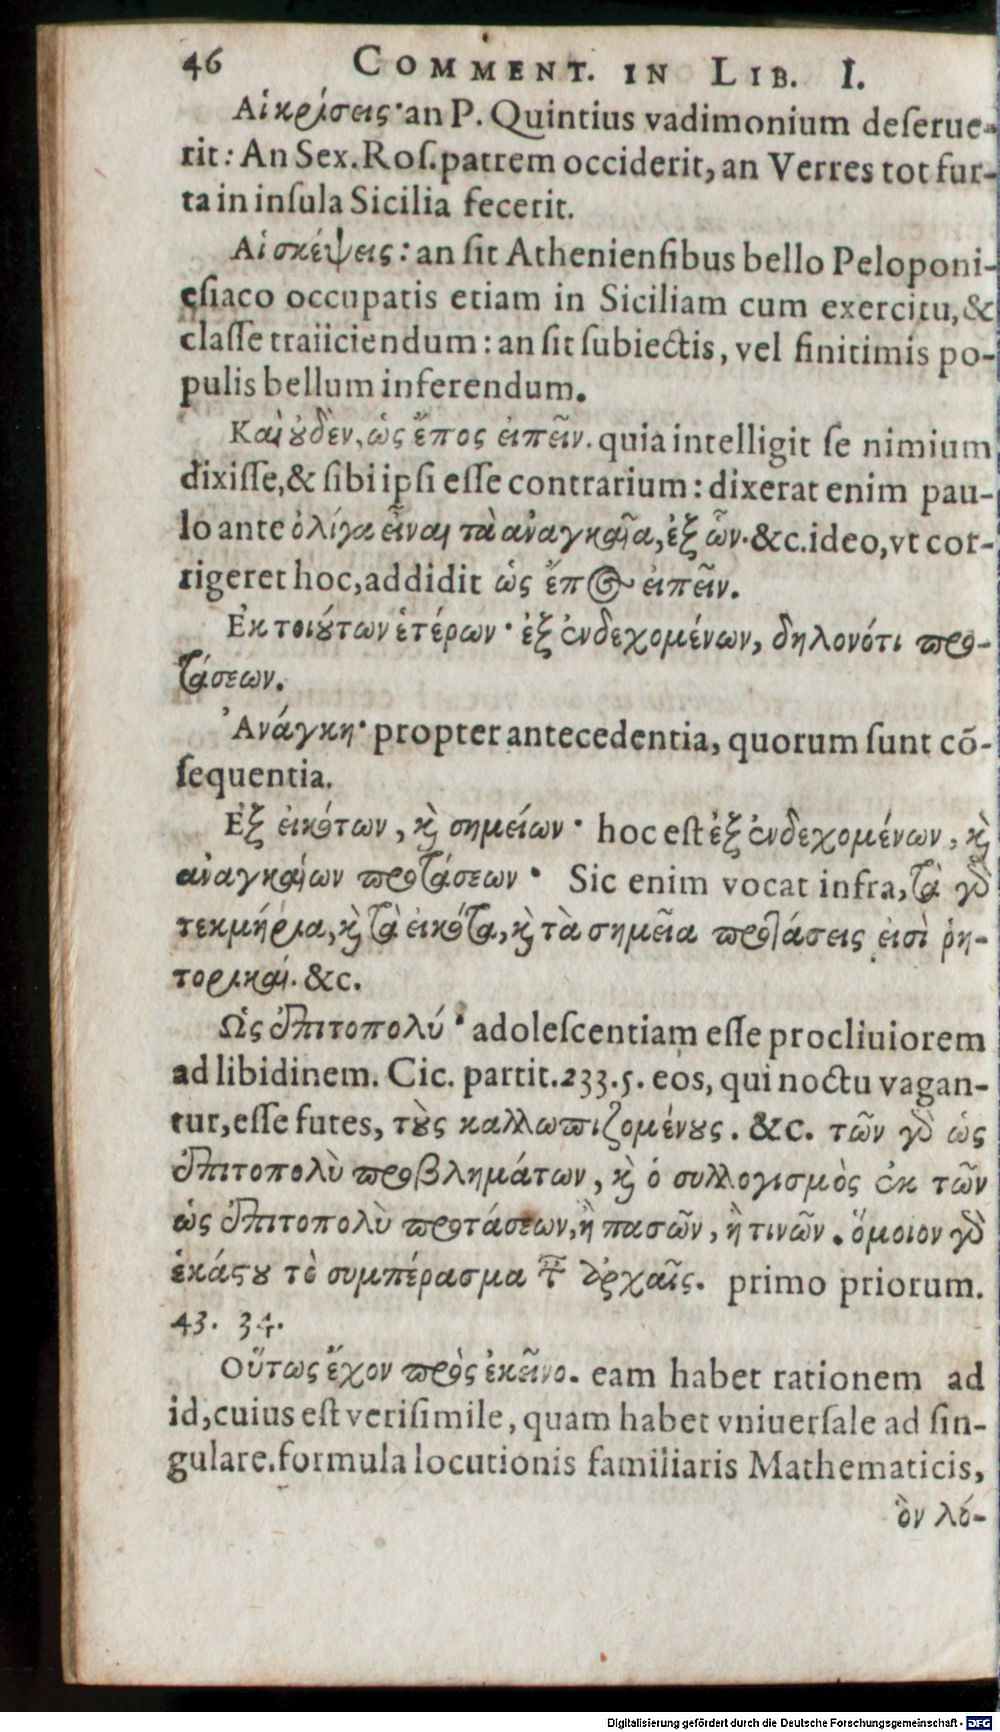 46 COMMENT. IN LIB. I.
Αἱ κρίσεις· an P. Quintius vadimonium deſerue-
rit: An Sex. Roſ. patrem occiderit, an Verres tot fur-
ta in inſula Sicilia fecerit.
Αἱ σκέψεις: an ſit Athenienſibus bello Peloponi-
eſiaco occupatis etiam in Siciliam cum exercitu, &
claſſe traiiciendum: an ſit ſubiectis, vel finitimis po-
pulis bellum inferendum.
Καὶ οὐδὲν, ὡς ἔπος εἰπεῖν. quia intelligit ſe nimium
dixiſſe, & ſibi ipſi eſſe contrarium: dixerat enim pau-
lo ante ὀλίγα εἶναι τὰ ἀναγκαῖα, ἐξ ὧν. &c. ideo, vt cor-
rigeret hoc, addidit ὡς ἔπος εἰπεῖν.
Ἐκ τοιούτων ἑτέρων· ἐξ ἐνδεχομένων, δηλονότι προ-
τάσεων.
Ἀνάγκη· propter antecedentia, quorum ſunt cõ-
ſequentia.
Ἐξ εἰκότων, καὶ σημείων· hoc eſt ἐξ ἐνδεχομένων, καὶ
ἀναγκαίων προτάσεων· Sic enim vocat infra, τὰ γὰρ
τεκμήρια, καὶ τὰ εἰκότα, καὶ τὰ σημεῖα προτάσεις εἰσὶ ῥη-
τορικαί. &c.
Ὡς ἐπιτοπολύ· adoleſcentiam eſſe procliuiorem
ad libidinem. Cic. partit. 233. 5. eos, qui noctu vagan-
tur, eſſe fures, τοὺς καλλωπιζομένους. &c. τῶν γὰρ ὡς
ἐπιτοπολὺ προβλημάτων, καὶ ὁ συλλογισμὸς ἐκ τῶν
ὡς ἐπιτοπολὺ προτάσεων, ἢ πασῶν, ἢ τινῶν. ὅμοιον γὰρ
ἑκάστου τὸ συμπέρασμα ταῖς ἀρχαῖς. primo priorum.
43. 34.
Οὕτως ἔχον πρὸς ἐκεῖνο. eam habet rationem ad
id, cuius eſt veriſimile, quam habet vniuerſale ad ſin-
gulare. formula locutionis familiaris Mathematicis,
ὃν λό-
Digitalisierung gefördert durch die Deutsche Forschungsgemeinschaft - DFG